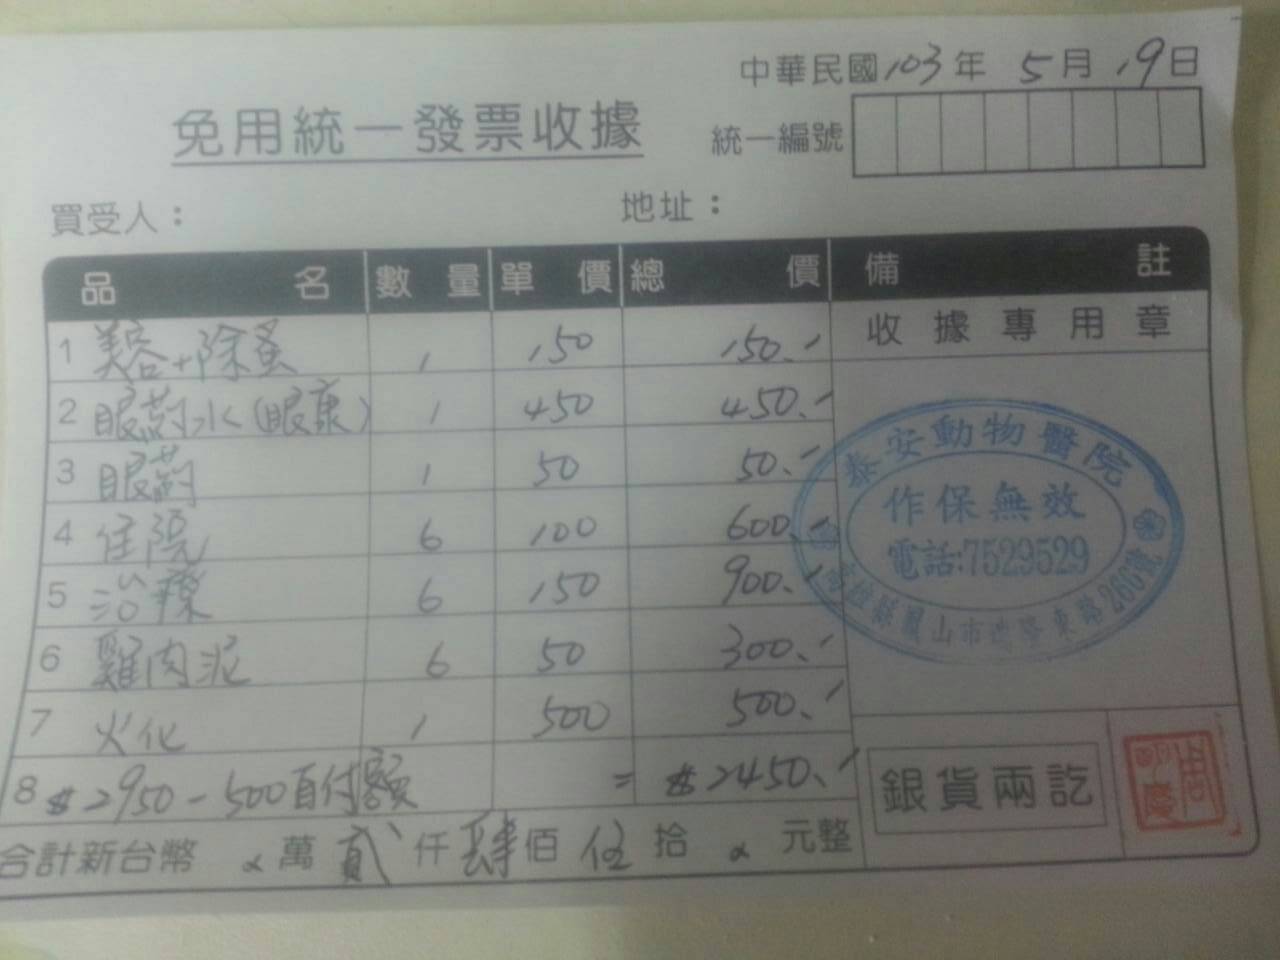 中華民國103年5月19日
免用統一發票收據
統一編號
買受人：
地址：
品名 數量 單價 總價 備註
收據專用章
1 美容+除蚤 1 150 150.-
2 眼葯水(眼康) 1 450 450.-
3 眼葯 1 50 50.-
4 住院 6 100 600.-
5 治療 6 150 900.-
6 雞肉泥 6 50 300.-
7 火化 1 500 500.-
8 $2950-500自付額 = $2450.-
合計新台幣 萬 貳仟肆佰伍拾 元整
泰安動物醫院
作保無效
電話:7529529
高雄縣鳳山市 東路260號
銀貨兩訖
周明慶